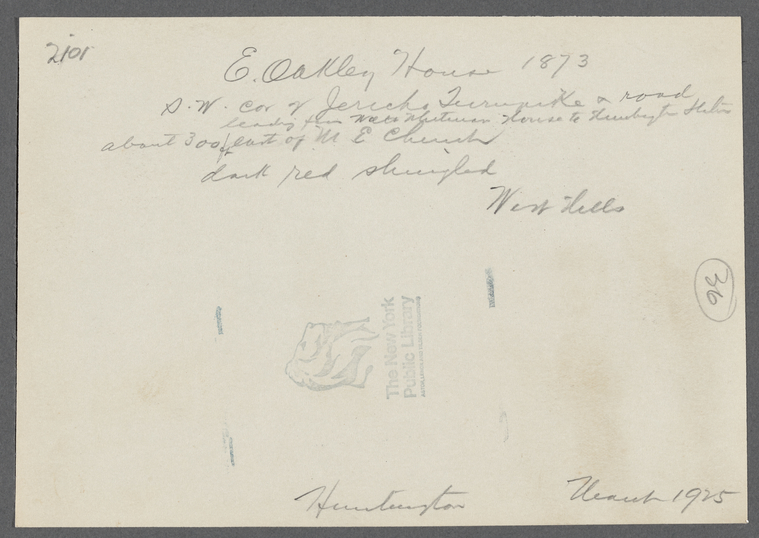 2101
E. Oakley House 1873
S.W. cor of Jericho Turnpike & road
leading from Walt Whitman House to Huntington Station
about 300 ft east of M E Church
dark red shingled
West Hills
The New York
Public Library
Huntington
March 1925